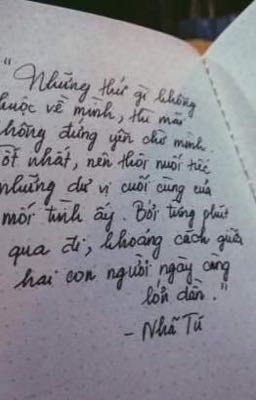 "Những thứ gì không
thuộc về mình, thì mãi
không đứng yên chờ mình.
Tốt nhất, nên thôi nuối tiếc
những dư vị cuối cùng của
mối tình ấy. Bởi từng phút
qua đi, khoảng cách giữa
hai con người ngày càng
lớn dần."
- Nhã Tú